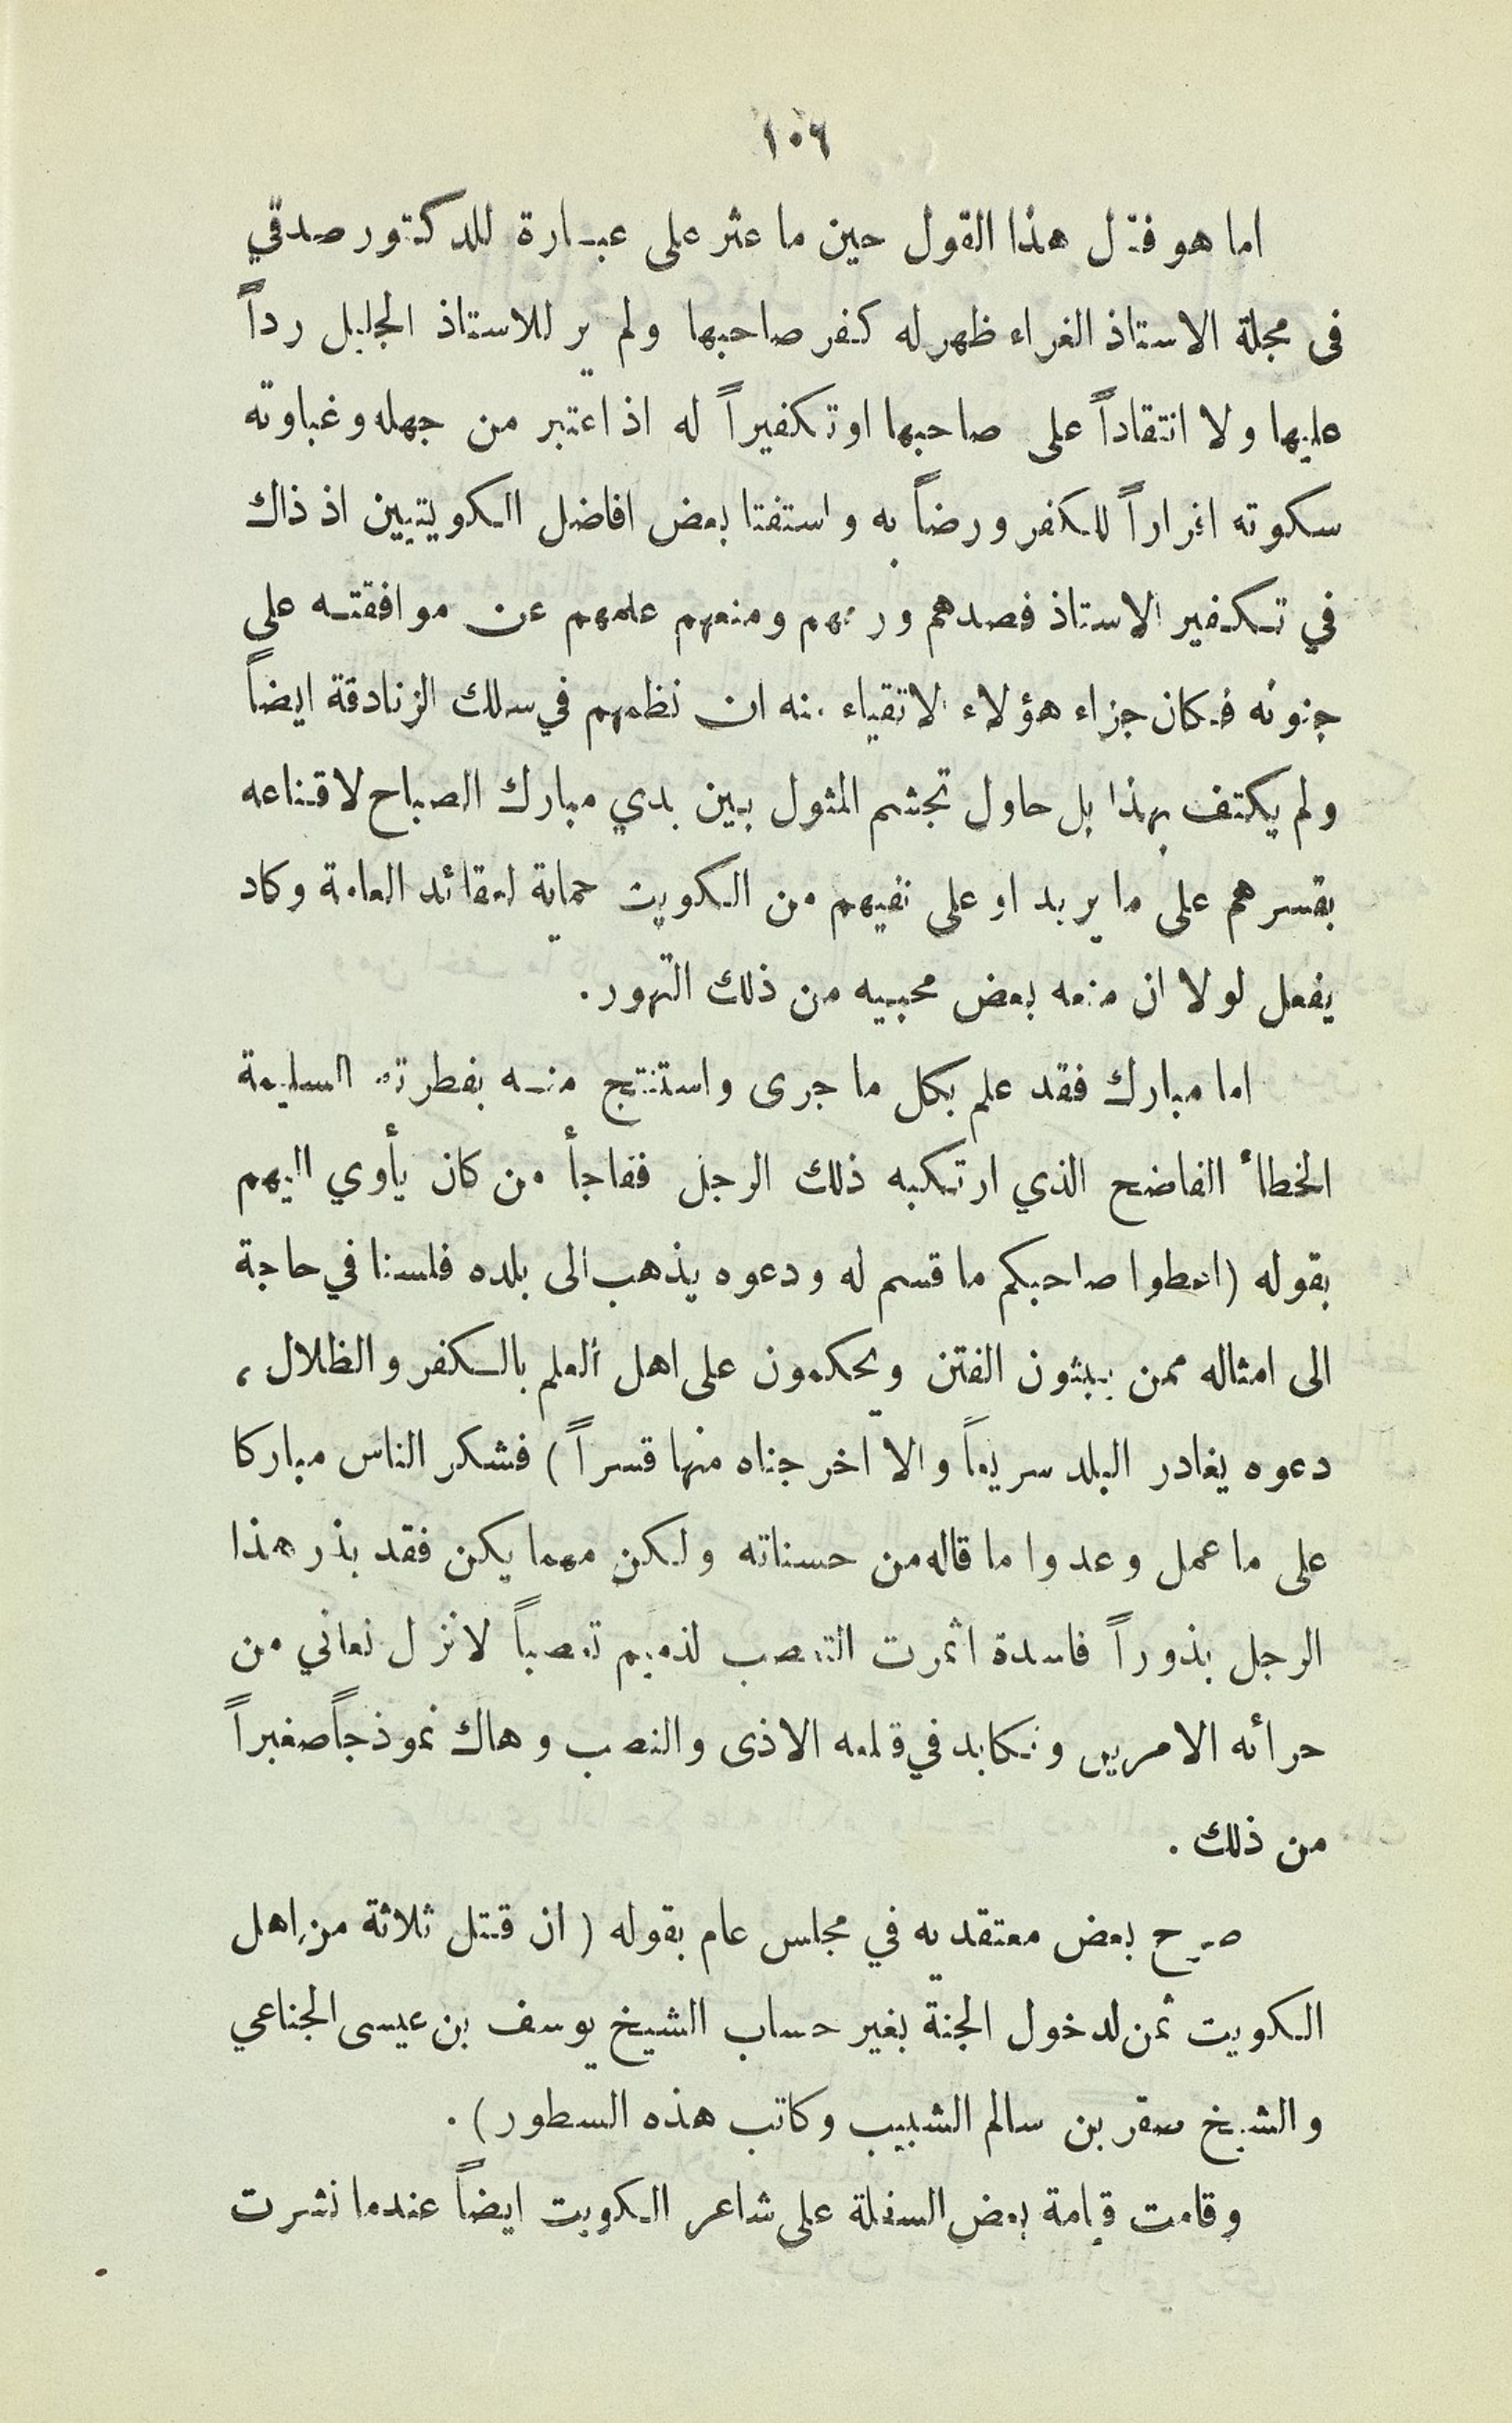 ١٠٦
اما هو فقال هذا القول حين ما عثر على عبارة للدكتور صدقي
فى مجلة الاستاذ الغراء ظهر له كفر صاحبها ولم ير للاستاذ الجليل رداً
عليها ولا انتقاداً على صاحبها او تكفيراً له اذ اعتبر من جهله وغباوته
سكوته اقراراً للكفر ورضاً به واستفتا بعض افاضل الكويتيين اذ ذاك
في تكفير الاستاذ فصدهم ومنعهم علمهم عن موافقته على
جنونه فكان جزاء هؤلاء الاتقياء منه ان نظمهم في سلك الزنادقة ايضاً
ولم يكتف بهذا بل حاول تجشم المثول بين يدي مبارك الصباح لاقناعه
بقسرهم على ما يريد او على نفيهم من الكويت حماية لعقائد العامة وكاد
يفعل لولا ان منعه بعض محبيه من ذلك التهور .
اما مبارك فقد علم بكل ما جرى واستنتج منه بفطرته السليمة
الخطأ الفاضح الذي ارتكبه ذلك الرجل ففاجأ من كان يأوي اليهم
بقوله (اعطوا صاحبكم ما قسم له ودعوه يذهب الى بلده فلسنا في حاجة
الى امثاله ممن يبثون الفتن ويحكمون على اهل العلم بالكفر والظلال ،
دعوه يغادر البلد سريعاً والا اخرجناه منها قسراً ) فشكر الناس مباركا
على ما عمل وعدوا ما قاله من حسناته ولكن مهما يكن فقد بذر هذا
الرجل بذوراً فاسدة اثمرت التعصب لذميم تعصباً لا نزل نعاني من
جرائه الامرين ونكابد في قلعه الاذى والنصب وهاك نموذجاً صغيراً
من ذلك .
صرح بعض معتقديه في مجلس عام بقوله ( ان قتل ثلاثة من اهل
الكويت ثمن لدخول الجنة بغير حساب الشيخ يوسف بن عيسى الجناعي
والشيخ صقر بن سالم الشبيب وكاتب هذه السطور ) .
وقامت قيامة بعض السفلة على شاعر الكويت ايضاً عندما نشرت